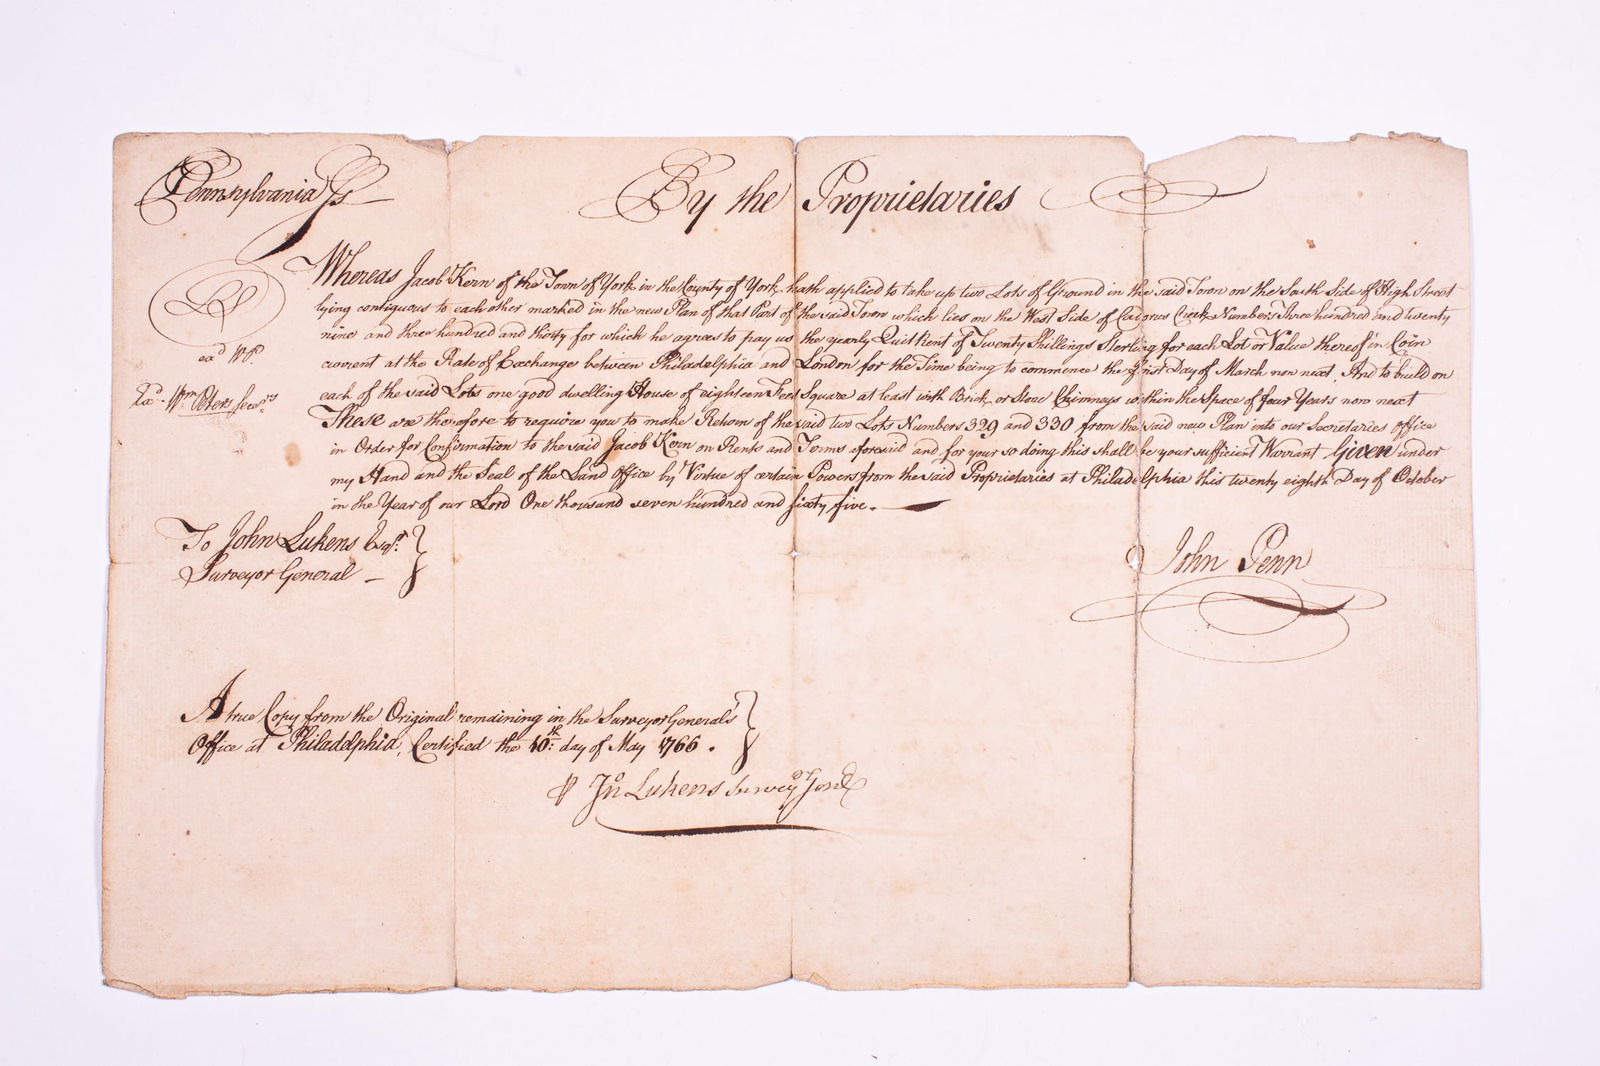 Pennsylvania Ss
By the Proprietaries
Whereas Jacob Kern of the Town of York in the County of York hath applied to take up two Lots of Ground in the said Town on the South Side of High Street
lying contiguous to each other marked in the new Plan of that Part of the said Town which lies on the West Side of Codorus Creek Numbers Three hundred and twenty
nine and three hundred and thirty for which he agrees to pay us the yearly Quitrent of Twenty Shillings Sterling for each Lot or Value thereof in Coin
current at the Rate of Exchange between Philadelphia and London for the Time being to commence the first Day of March now next, And to build on
each of the said Lots one good dwelling House of eighteen Feet Square at least with Brick or Stone Chimneys within the Space of four Years now next
These are therefore to require you to make Return of the said two Lots Numbers 329 and 330 from the said new Plan into our Secretaries office
in Order for Confirmation to the said Jacob Kern on Rents and Terms aforesaid and for your so doing this shall be your sufficient Warrant, Given under
my Hand and the Seal of the Land Office by Virtue of certain Powers from the said Proprietaries at Philadelphia this twenty eighth Day of October
in the Year of our Lord One thousand seven hundred and sixty five.
LS
Wm. Peters Secry.
To John Lukens Esqr.
Surveyor General
John Penn
A true Copy from the Original remaining in the Surveyor General's
Office at Philadelphia, Certified the 10th. day of May 1766.
Jno Lukens Surveyr Genl